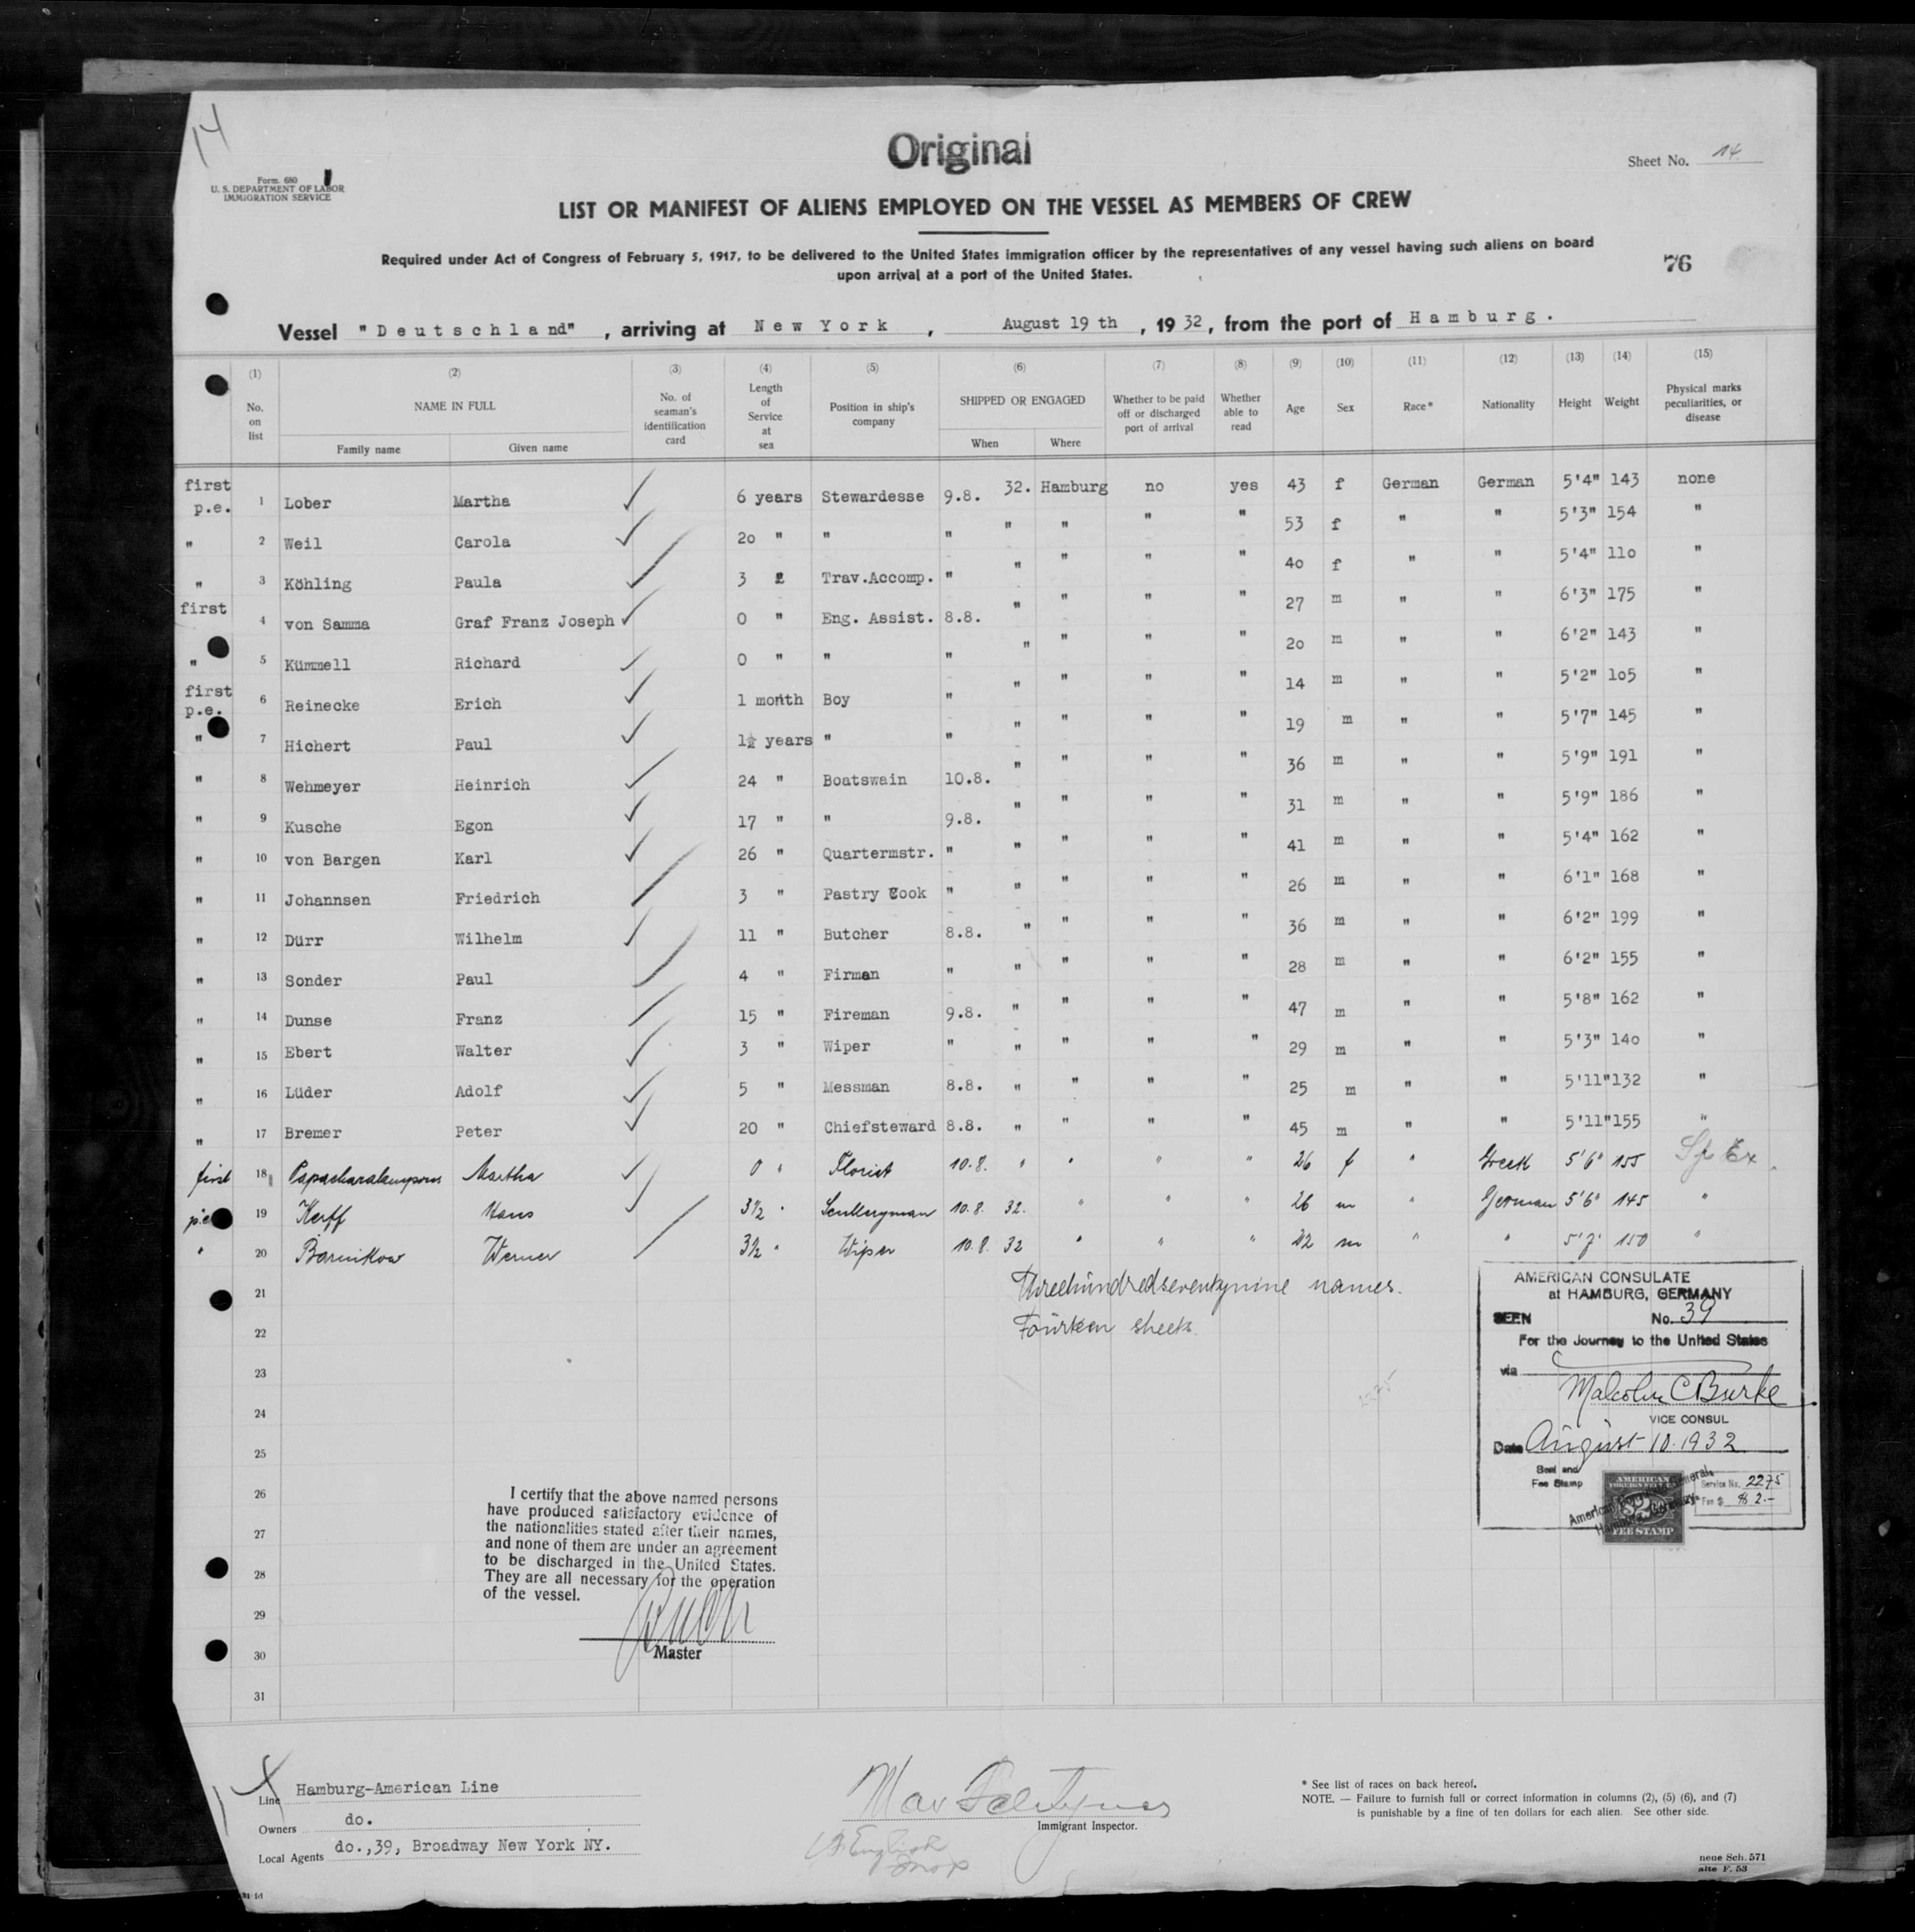 14
Original
Sheet No. 14.
Form. 680
U. S. DEPARTMENT OF LABOR
IMMIGRATION SERVICE
LIST OR MANIFEST OF ALIENS EMPLOYED ON THE VESSEL AS MEMBERS OF CREW
Required under Act of Congress of February 5, 1917, to be delivered to the United States immigration officer by the representatives of any vessel having such aliens on board
upon arrival at a port of the United States.
76
Vessel "Deutschland", arriving at New York, August 19 th, 1932, from the port of Hamburg.
(1) (2) (3) (4) (5) (6) (7) (8) (9) (10) (11) (12) (13) (14) (15)
No. on list NAME IN FULL Family name Given name No. of seaman's identification card Length of Service at sea Position in ship's company SHIPPED OR ENGAGED When Where Whether to be paid off or discharged port of arrival Whether able to read Age Sex Race* Nationality Height Weight Physical marks peculiarities, or disease
first p.e. 1 Lober Martha 6 years Stewardesse 9.8. 32. Hamburg no yes 43 f German German 5'4" 143 none
" 2 Weil Carola 20 " " " " " " " 53 f " " 5'3" 154 "
" 3 Köhling Paula 3 " Trav.Accomp. " " " " " 40 f " " 5'4" 110 "
first 4 von Samma Graf Franz Joseph 0 " Eng. Assist. 8.8. " " " " 27 m " " 6'3" 175 "
" 5 Kümmell Richard 0 " " " " " " " 20 m " " 6'2" 143 "
first p.e. 6 Reinecke Erich 1 month Boy " " " " " 14 m " " 5'2" 105 "
" 7 Hichert Paul 1½ years " " " " " " 19 m " " 5'7" 145 "
" 8 Wehmeyer Heinrich 24 " Boatswain 10.8. " " " " 36 m " " 5'9" 191 "
" 9 Kusche Egon 17 " " 9.8. " " " " 31 m " " 5'9" 186 "
" 10 von Bargen Karl 26 " Quartermstr. " " " " " 41 m " " 5'4" 162 "
" 11 Johannsen Friedrich 3 " Pastry Cook " " " " " 26 m " " 6'1" 168 "
" 12 Dürr Wilhelm 11 " Butcher 8.8. " " " " 36 m " " 6'2" 199 "
" 13 Sonder Paul 4 " Firman " " " " " 28 m " " 6'2" 155 "
" 14 Dunse Franz 15 " Fireman 9.8. " " " " 47 m " " 5'8" 162 "
" 15 Ebert Walter 3 " Wiper " " " " " 29 m " " 5'3" 140 "
" 16 Lüder Adolf 5 " Messman 8.8. " " " " 25 m " " 5'11" 132 "
" 17 Bremer Peter 20 " Chiefsteward 8.8. " " " " 45 m " " 5'11" 155 "
first 18 Papacharalampous Martha 0 " Florist 10.8. " " " " 26 f " Greek 5'6" 155 Sp Ex.
p.e. 19 Kerff Hans 3½ " Sculleryman 10.8. 32. " " " 26 m " German 5'6" 145 "
" 20 Barnikow Werner 3½ " Wiper 10.8. 32 " " " 22 m " " 5'7" 150 "
21
22
23
24
25
26
27
28
29
30
31
Threehundredseventynine names.
Fourteen sheets.
AMERICAN CONSULATE
at HAMBURG, GERMANY
SEEN No. 39
For the Journey to the United States
via
Malcolm C Burke
VICE CONSUL
Date August 10. 1932
Seal and
Fee Stamp
AMERICAN
FOREIGN SERVICE
$2
FEE STAMP
Service No. 2275
Fee $ 2.-
I certify that the above named persons
have produced satisfactory evidence of
the nationalities stated after their names,
and none of them are under an agreement
to be discharged in the United States.
They are all necessary for the operation
of the vessel.
Master
Line Hamburg-American Line
Owners do.
Local Agents do.,39, Broadway New York NY.
Immigrant Inspector.
* See list of races on back hereof.
NOTE. — Failure to furnish full or correct information in columns (2), (5) (6), and (7)
is punishable by a fine of ten dollars for each alien. See other side.
neue Sch. 571
alte F. 53